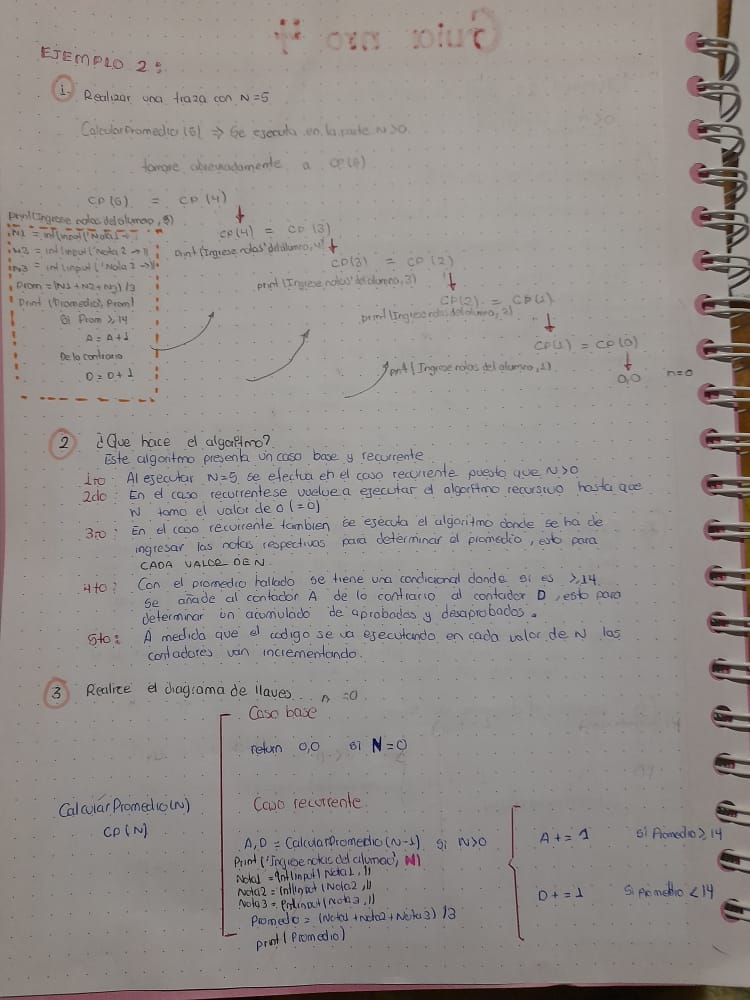 Guia nro 4
EJEMPLO 2:
1. Realizar una traza con N=5
CalcularPromedio(5) => Se ejecuta en la parte N>0
tomare abreviadamente a CP(5)
CP(5) = CP(4)
print(Ingrese notas del alumno, 5)
N1 = int(input('Nota1 →
N2 = int(input('Nota 2 → ))
N3 = int(input('Nota 3 → ))
Prom = (N1+N2+N3)/3
Print (Promedio), Prom)
Si Prom ≥ 14
A = A+1
De lo contrario
D = D+1
CP(4) = CP(3)
print(Ingrese notas' del alumno, 4)
CP(3) = CP(2)
print(Ingrese notas' del alumno, 3)
CP(2) = CP(1)
print(Ingrese notas del alumno, 2)
CP(1) = CP(0)
print(Ingrese notas del alumno, 1)
0,0 n=0
2 ¿Que hace el algoritmo?
Este algoritmo presenta un caso base y recurrente
1ro: Al ejecutar N=5 se efectua en el caso recurrente puesto que N>0
2do: En el caso recurrente se vuelve a ejecutar el algoritmo recursivo hasta que
N tomo el valor de 0 (=0)
3ro: En el caso recurrente tambien se ejecuta el algoritmo donde se ha de
ingresar las notas respectivas para determinar el promedio, esto para
CADA VALOR DE N.
4to: Con el promedio hallado se tiene una condicional donde si es ≥14
se añade al contador A de lo contrario al contador D, esto para
determinar un acumulado de aprobados y desaprobados.
5to: A medida que el codigo se va ejecutando en cada valor de N los
contadores van incrementando.
3 Realice el diagrama de llaves. n =0
Caso base
return 0,0 si N=0
CalcularPromedio(N)
CP(N)
Caso recurrente
A,D = CalcularPromedio(N-1) si N>0
Print('Ingrese notas del alumno', N)
Nota1 = int(input(Nota1,))
Nota2 = int(input(Nota2,))
Nota3 = int(input(Nota3,))
Promedio = (Nota1+Nota2+Nota3)/3
print(Promedio)
A+= 1 si Promedio ≥ 14
D+=1 Si promedio < 14